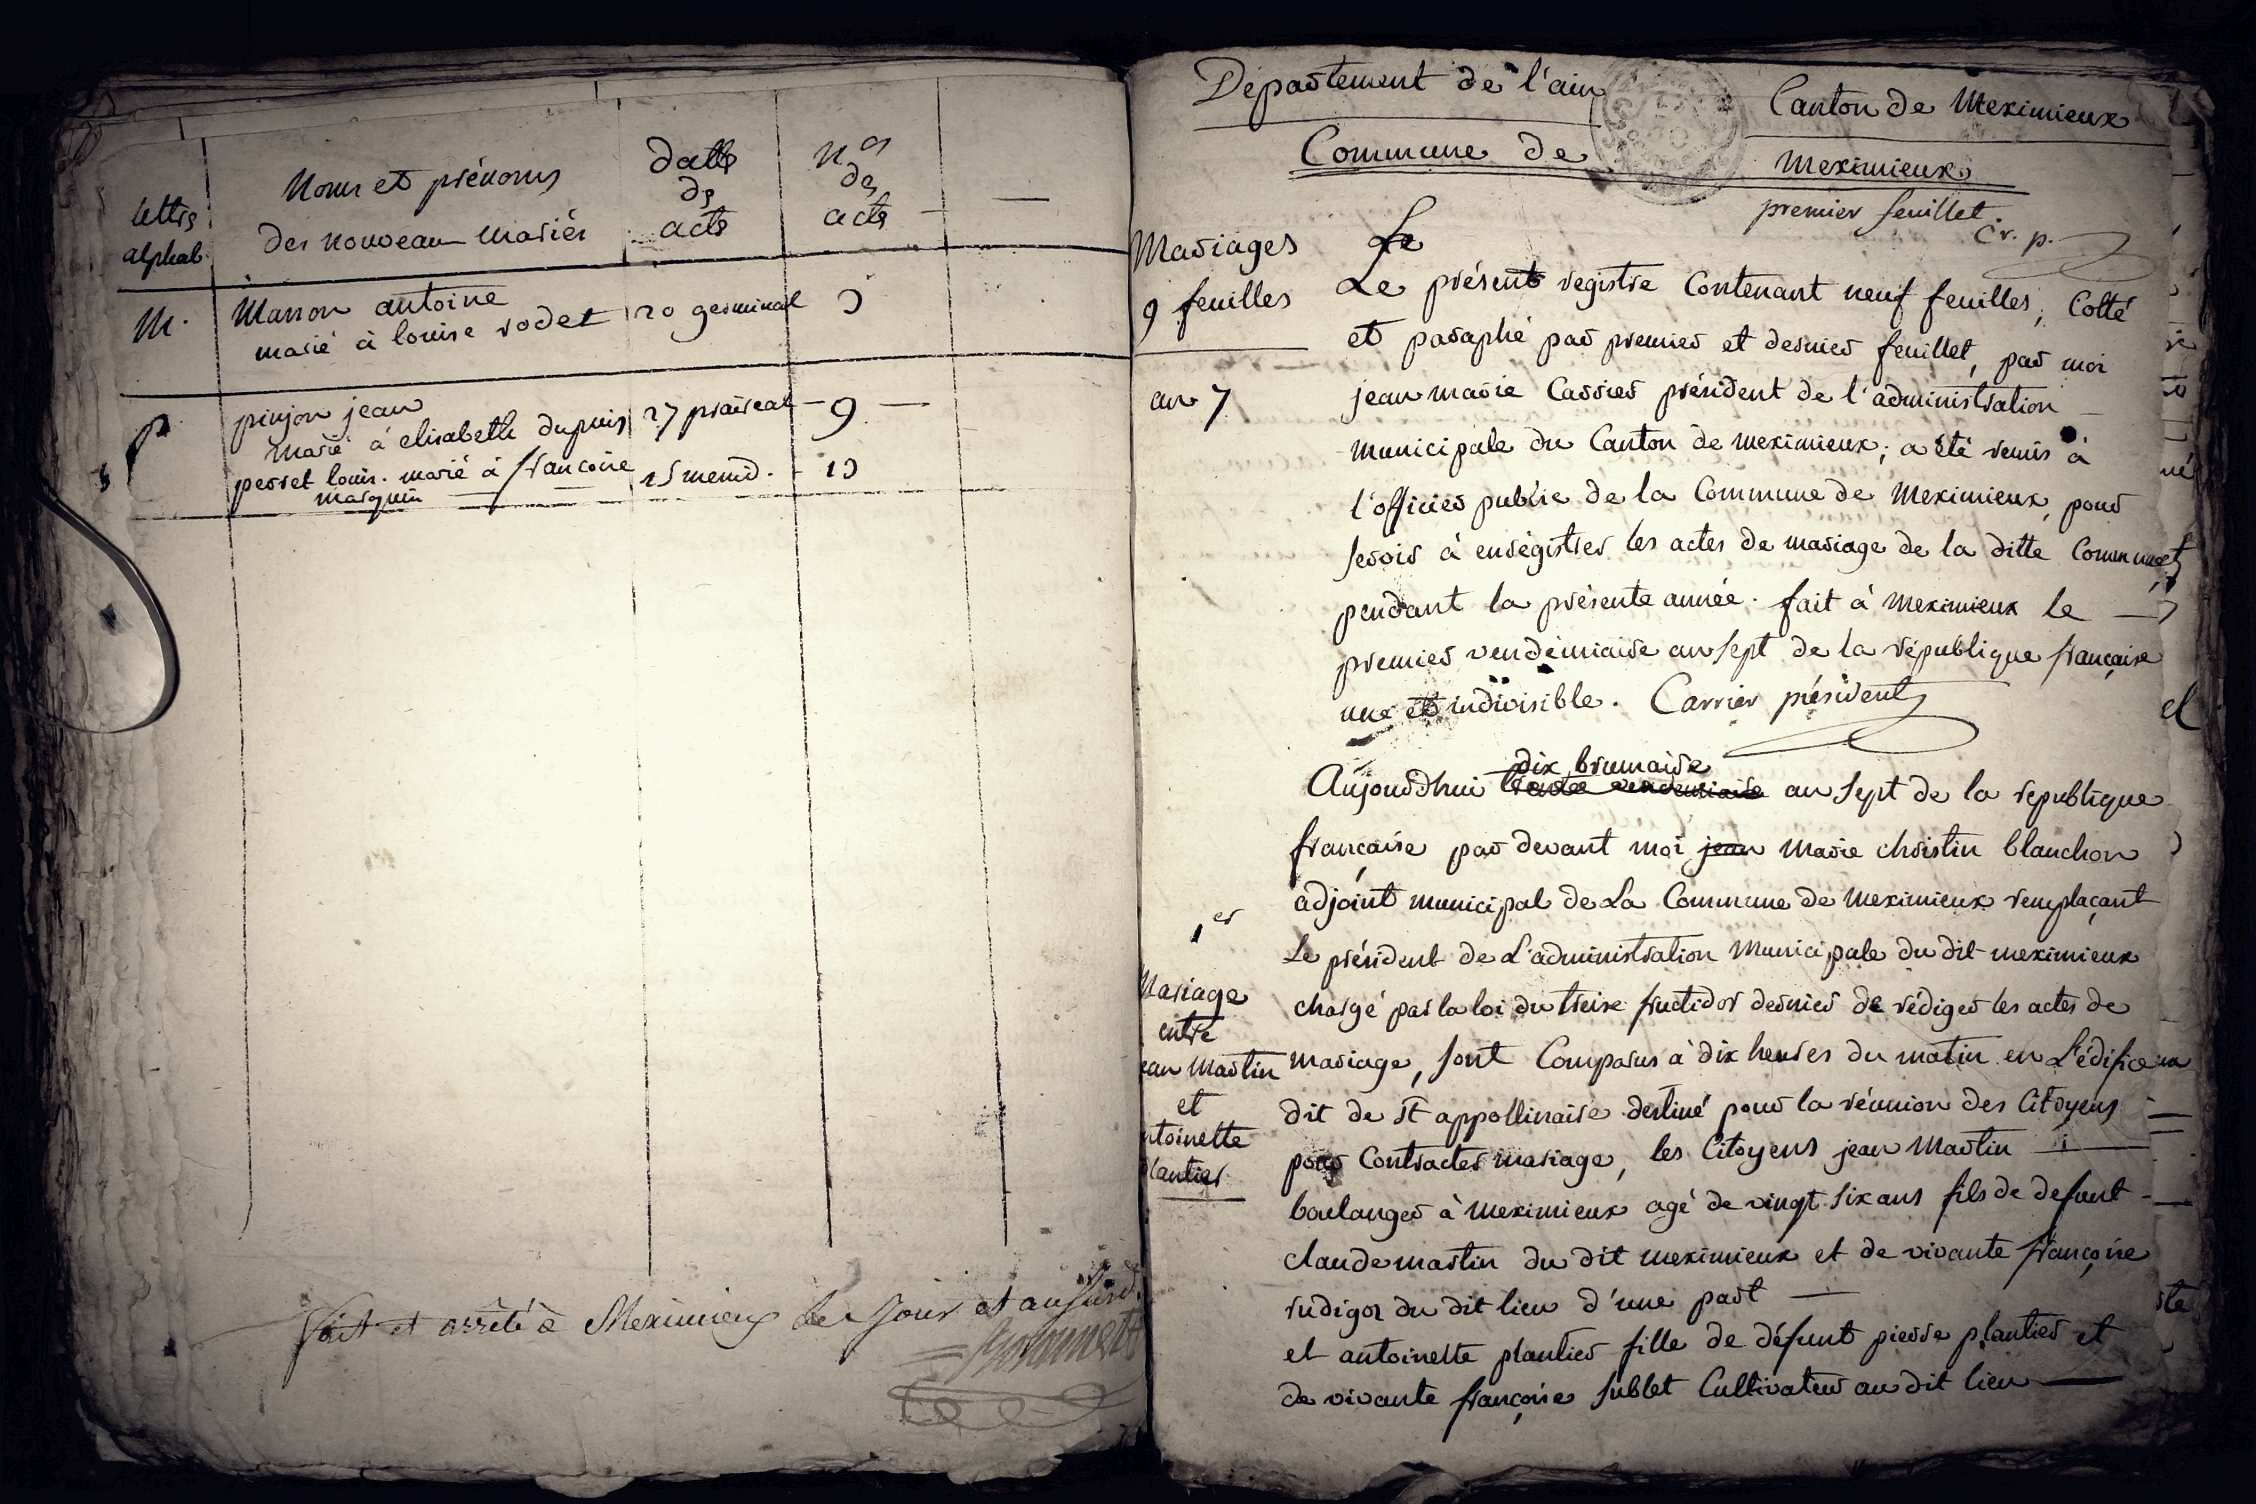 lettres
alphab.
Noms et prénoms
des nouveau mariés
dattes
des
actes
n.os
des
actes
M.
Manon antoine
marié à louise rodet
20 germinal
pinjon jean
marié à elisabeth dupuis
27 prairéal
9
perret louis. marié à françoise
marquin
15 messid.
10
fait et arrêté à Meximieux les jour et an susd.
Département de l'ain
Canton de Meximieux
Commune de Meximieux
premier feuillet.
cr. p.
Mariages
9 feuilles
an 7
Le
Le présent registre Contenant neuf feuilles, Cotté
et paraphé par premier et dernier feuillet, par moi
jean marie Carrier président de l'administration
municipale du Canton de meximieux; a été remis à
l'officier public de la Commune de Meximieux, pour
servir à enrégistrer les actes de mariage de la ditte Commune
pendant la présente année. fait à meximieux le
premier vendemiaire an sept de la république française
une et indivisible. Carrier président
dix brumaire
Aujourdhui trente vendemiaire an sept de la republique
française par devant moi jean Marie christin blanchon
adjoint municipal de La Commune de meximieux remplaçant
Le président de L'administration Municipale du dit meximieux
chargé par la loi du treize fructidor dernier de rédiger les actes de
mariage, sont Comparus à dix heures du matin en L'édifice
dit de st appollinaire destiné pour la réunion des Citoyens
pour Contracter mariage, les Citoyens jean Martin
boulanger à meximieux agé de vingt six ans fils de defunt
claude martin du dit meximieux et de vivante françoise
rudigoz du dit lieu d'une part
et antoinette plantier fille de défunt pierre plantier et
de vivante françoise sublet Cultivateur au dit lieu
1er
Mariage
entre
jean Martin
et
antoinette
plantier